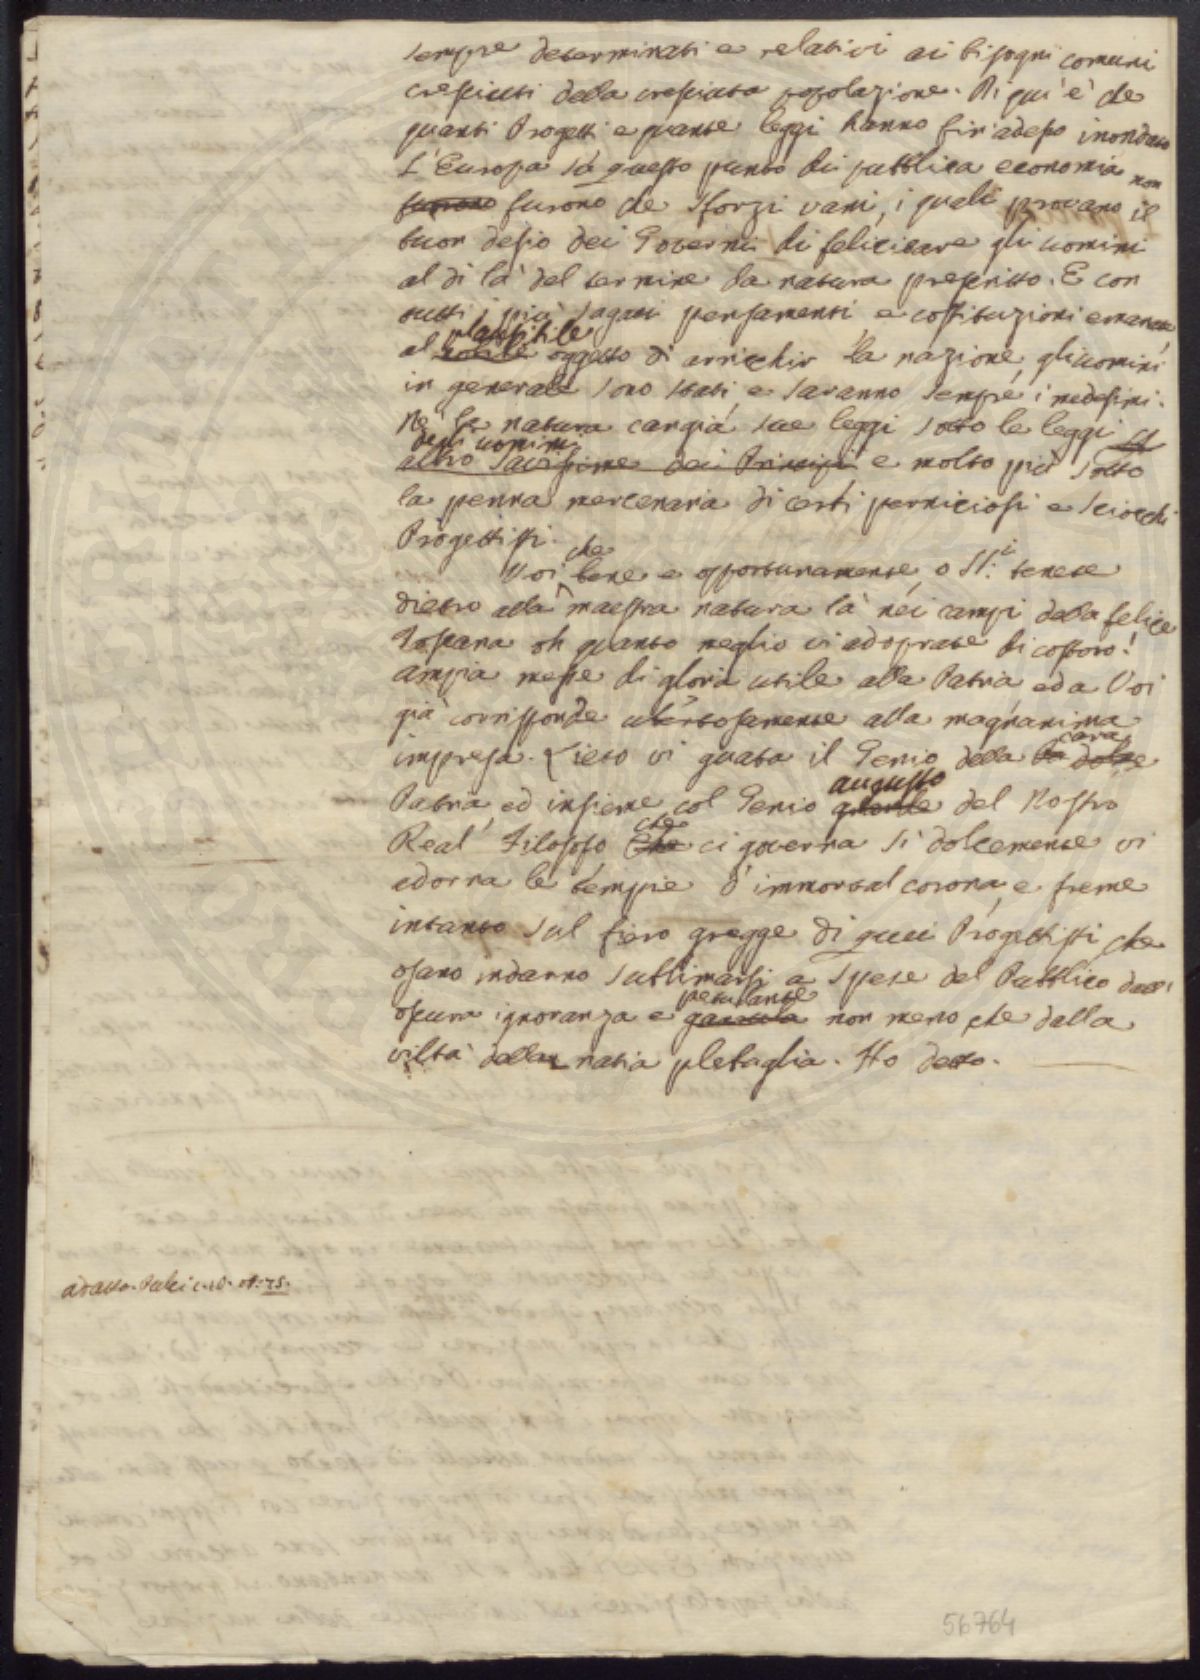 sempre determinati e relativi ai bisogni comuni
cresciuti dalla cresciuta popolazione. Di qui è che
quanti Progetti e quante leggi hanno fin'adesso inondato
L'Europa su questo punto di pubblica economia non
furono furono che sforzi vani, i quali provano il
buon desio dei Governi di felicitare gli uomini
al di là del termine da natura prescritto. E con
tutti i più sagaci pensamenti e costituzioni emanate
plausibile
al nobile oggetto di arricchir la nazione, gli uomini
in generale sono stati e saranno sempre i medesimi.
Nè la natura cangia sue leggi sotto le leggi
degli uomini
dei Principi e molto più sotto
la penna mercenaria di certi perniciosi e sciocchi
Progettisti.
che
Voi bene e opportunamente, o SS.i tenete
dietro alla maestra natura là nei campi della felice
Toscana oh quanto meglio vi adoprate di costoro!
ampia messe di gloria utile alla Patria ed a Voi
già corrisponde ubertosamente alla magnanima
cara
impresa. Lieto vi guata il Genio della dolce
augusto
Patria, ed insieme col Genio grande del Nostro
che
Real Filosofo che ci governa sì dolcemente vi
adorna le tempie d'immortal corona, e freme
intanto sul fiero gregge di quei Progettisti, che
osano indarno sublimarsi a spese del Pubblico dall'
petulante
oscura ignoranza e garrula non meno, che dalla
viltà della natia plebaglia. Ho detto.
56764